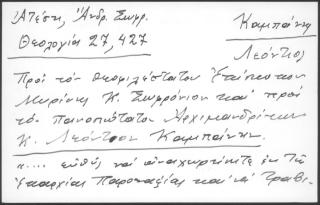 Ἀτέση, Ἀνδρ. Σωφρ.
Καμπάνη
Θεολογία 27, 427
Λεόντιος
Πρὸς τὸν Θεοφιλέστατον Ἐπίσκοπον
Μυρίνης Κ. Σωφρόνιον καὶ πρὸς
τὸν Πανοσιώτατον Ἀρχιμανδρίτην
Κ. Λεόντιον Καμπάνην.
«.... εὐθὺς νὰ ἀναχωρήσητε ἐκ τῆς
Ἐπαρχίας Παροναξίας καὶ νὰ